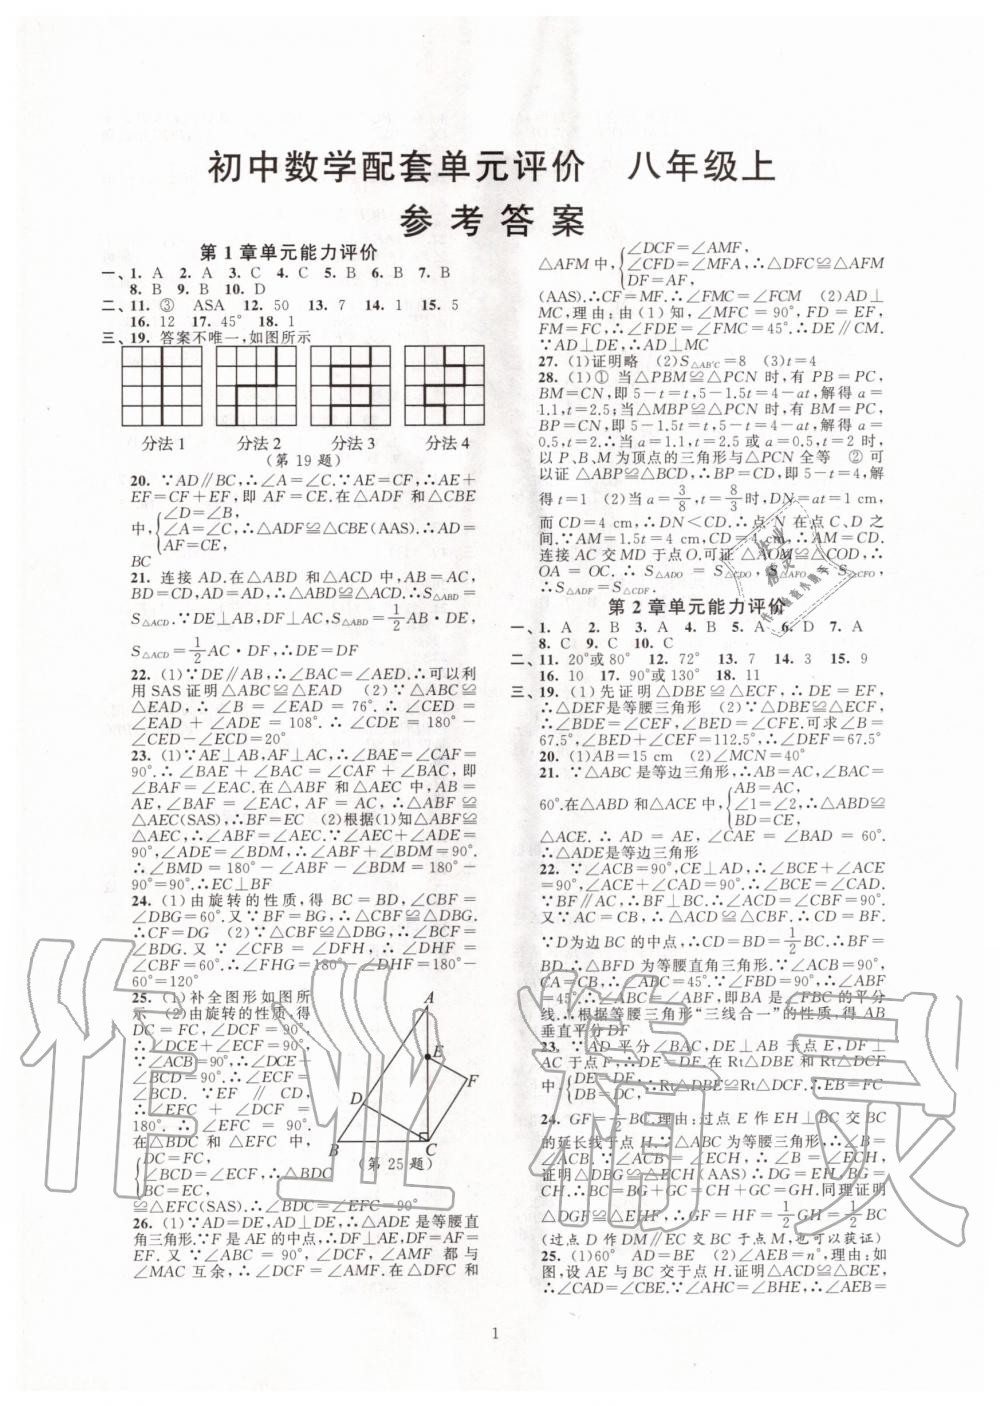 初中数学配套单元评价 八年级上
参考答案
第1章单元能力评价
一、1. A 2. A 3. C 4. C 5. B 6. B 7. B
8. B 9. B 10. D
二、11. ③ ASA 12. 50 13. 7 14. 1 15. 5
16. 12 17. 45° 18. 1
三、19. 答案不唯一,如图所示
分法1 分法2 分法3 分法4
(第19题)
20. ∵AD∥BC,∴∠A=∠C.∵AE=CF,∴AE+
EF=CF+EF,即 AF=CE.在△ADF 和△CBE
中,{∠D=∠B,
∠A=∠C,∴△ADF≌△CBE(AAS).∴AD=
AF=CE,
BC
21. 连接 AD.在△ABD 和△ACD 中,AB=AC,
BD=CD,AD=AD,∴△ABD≌△ACD.∴S△ABD=
S△ACD.∵DE⊥AB,DF⊥AC,∴S△ABD=1/2AB·DE,
S△ACD=1/2AC·DF,∴DE=DF
22. (1)∵DE∥AB,∴∠BAC=∠AED.∴可以利
用 SAS 证明△ABC≌△EAD (2)∵△ABC≌
△EAD,∴∠B=∠EAD=76°.∴∠CED=
∠EAD+∠ADE=108°.∴∠CDE=180°-
∠CED-∠ECD=20°
23. (1)∵AE⊥AB,AF⊥AC,∴∠BAE=∠CAF=
90°.∴∠BAE+∠BAC=∠CAF+∠BAC,即
∠BAF=∠EAC.在△ABF 和△AEC 中,AB=
AE,∠BAF=∠EAC,AF=AC,∴△ABF≌
△AEC(SAS),∴BF=EC (2)根据(1)知△ABF≌
△AEC,∴∠ABF=∠AEC.∵∠AEC+∠ADE=
90°,∠ADE=∠BDM,∴∠ABF+∠BDM=90°.
∴∠BMD=180°-∠ABF-∠BDM=180°-
90°=90°.∴EC⊥BF
24. (1)由旋转的性质,得 BC=BD,∠CBF=
∠DBG=60°.又∵BF=BG,∴△CBF≌△DBG.
∴CF=DG (2)∵△CBF≌△DBG,∴∠BCF=
∠BDG.又∵∠CFB=∠DFH,∴∠DHF=
∠CBF=60°.∴∠FHG=180°-∠DHF=180°-
60°=120°
25. (1)补全图形如图所
示 (2)由旋转的性质,得
DC=FC,∠DCF=90°,
∴∠DCE+∠ECF=90°.
∵∠ACB=90°,∴∠DCE+
∠BCD=90°.∴∠ECF=
∠BCD.∵EF∥CD,
∴∠EFC+∠DCF=
180°.∴∠EFC=90°.
在△BDC 和△EFC 中,
{DC=FC,
∠BCD=∠ECF,∴△BDC
BC=EC,
≌△EFC(SAS).∴∠BDC=∠EFC=90°
A
E
F
D
B
C
(第25题)
26. (1)∵AD=DE,AD⊥DE,∴△ADE 是等腰直
角三角形.∵F 是 AE 的中点,∴DF⊥AE,DF=AF=
EF.又∵∠ABC=90°,∠DCF,∠AMF 都与
∠MAC 互余,∴∠DCF=∠AMF.在△DFC 和
△AFM 中,{∠DCF=∠AMF,
∠CFD=∠MFA,∴△DFC≌△AFM
DF=AF,
(AAS).∴CF=MF.∴∠FMC=∠FCM (2)AD⊥
MC,理由:由(1)知,∠MFC=90°,FD=EF,
FM=FC,∴∠FDE=∠FMC=45°.∴DE∥CM.
∵AD⊥DE,∴AD⊥MC
27. (1)证明略 (2)S△AB'C=8 (3)t=4
28. (1)① 当△PBM≌△PCN 时,有 PB=PC,
BM=CN,即 5-t=t,5-1.5t=4-at,解得 a=
1.1,t=2.5;当△MBP≌△PCN 时,有 BM=PC,
BP=CN,即 5-1.5t=t,5-t=4-at,解得 a=
0.5,t=2.∴当 a=1.1,t=2.5 或 a=0.5,t=2 时,
以 P、B、M 为顶点的三角形与△PCN 全等 ② 可
以证△ABP≌△BCD,∴BP=CD,即 5-t=4,解
得 t=1 (2)当 a=3/8,t=8/3时,DN=at=1 cm,
而 CD=4 cm,∴DN<CD.∴点 N 在点 C、D 之
间.∵AM=1.5t=4 cm,CD=4 cm,∴AM=CD.
连接 AC 交 MD 于点 O.可证△AOM≌△COD,∴
OA=OC.∴S△ADO=S△CDO,S△AFO=S△CFO.
∴S△ADF=S△CDF.
第2章单元能力评价
一、1. A 2. B 3. A 4. B 5. A 6. D 7. A
8. C 9. C 10. C
二、11. 20°或80° 12. 72° 13. 7 14. 3 15. 9
16. 10 17. 90°或130° 18. 11
三、19. (1)先证明△DBE≌△ECF,∴DE=EF,
∴△DEF是等腰三角形 (2)∵△DBE≌△ECF,
∴∠BDE=∠CEF,∠BED=∠CFE.可求∠B=
67.5°,∠BED+∠CEF=112.5°,∴∠DEF=67.5°
20. (1)AB=15 cm (2)∠MCN=40°
21. ∵△ABC是等边三角形,∴AB=AC,∠BAC=
60°.在△ABD 和△ACE 中,{AB=AC,
∠1=∠2,∴△ABD≌
BD=CE,
△ACE.∴AD=AE,∠CAE=∠BAD=60°.
∴△ADE是等边三角形
22. ∵∠ACB=90°,CE⊥AD,∴∠BCE+∠ACE
=90°,∠ACE+∠CAD=90°.∴∠BCE=∠CAD.
∵BF∥AC,∴BF⊥CB.∴∠ACD=∠CBF=90°.
又∵AC=CB,∴△ACD≌△CBF.∴CD=BF.
∵D为边 BC 的中点,∴CD=BD=1/2BC.∴BF=
BD.∴△BFD 为等腰直角三角形.∵∠ACB=90°,
CA=CB,∴∠ABC=45°.∵∠FBD=90°,∴∠ABF
=45°.∴∠ABC=∠ABF,即BA是∠FBC的平分
线.∴根据等腰三角形“三线合一”的性质,得 AB
垂直平分DF
23. ∵AD 平分∠BAC,DE⊥AB 于点 E,DF⊥
AC于点F,∴DE=DF.在 Rt△DBE 和Rt△DCF
中{DE=DF,
DB=DC,∴Rt△DBE≌Rt△DCF.∴EB=FC
24. GF=1/2BC.理由:过点 E 作 EH⊥BC 交 BC
的延长线于点 H.∵△ABC 为等腰三角形,∴∠B=
∠ACB.∵∠ACB=∠ECH,∴∠B=∠ECH,
证明△DBG≌△ECH(AAS).∴DG=EH,BG=
CH.∴BC=BG+GC=CH+GC=GH.同理证明
△DGF≌△EHF,∴GF=HF=1/2GH=1/2BC
(过点 D作 DM∥EC 交 BC 于点 M,也可以获证)
25. (1)60° AD=BE (2)∠AEB=n°,理由:如
图,设 AE 与 BC 交于点 H.证明△ACD≌△BCE,
∴∠CAD=∠CBE.∵∠AHC=∠BHE,∴∠AEB=
1
作业精灵